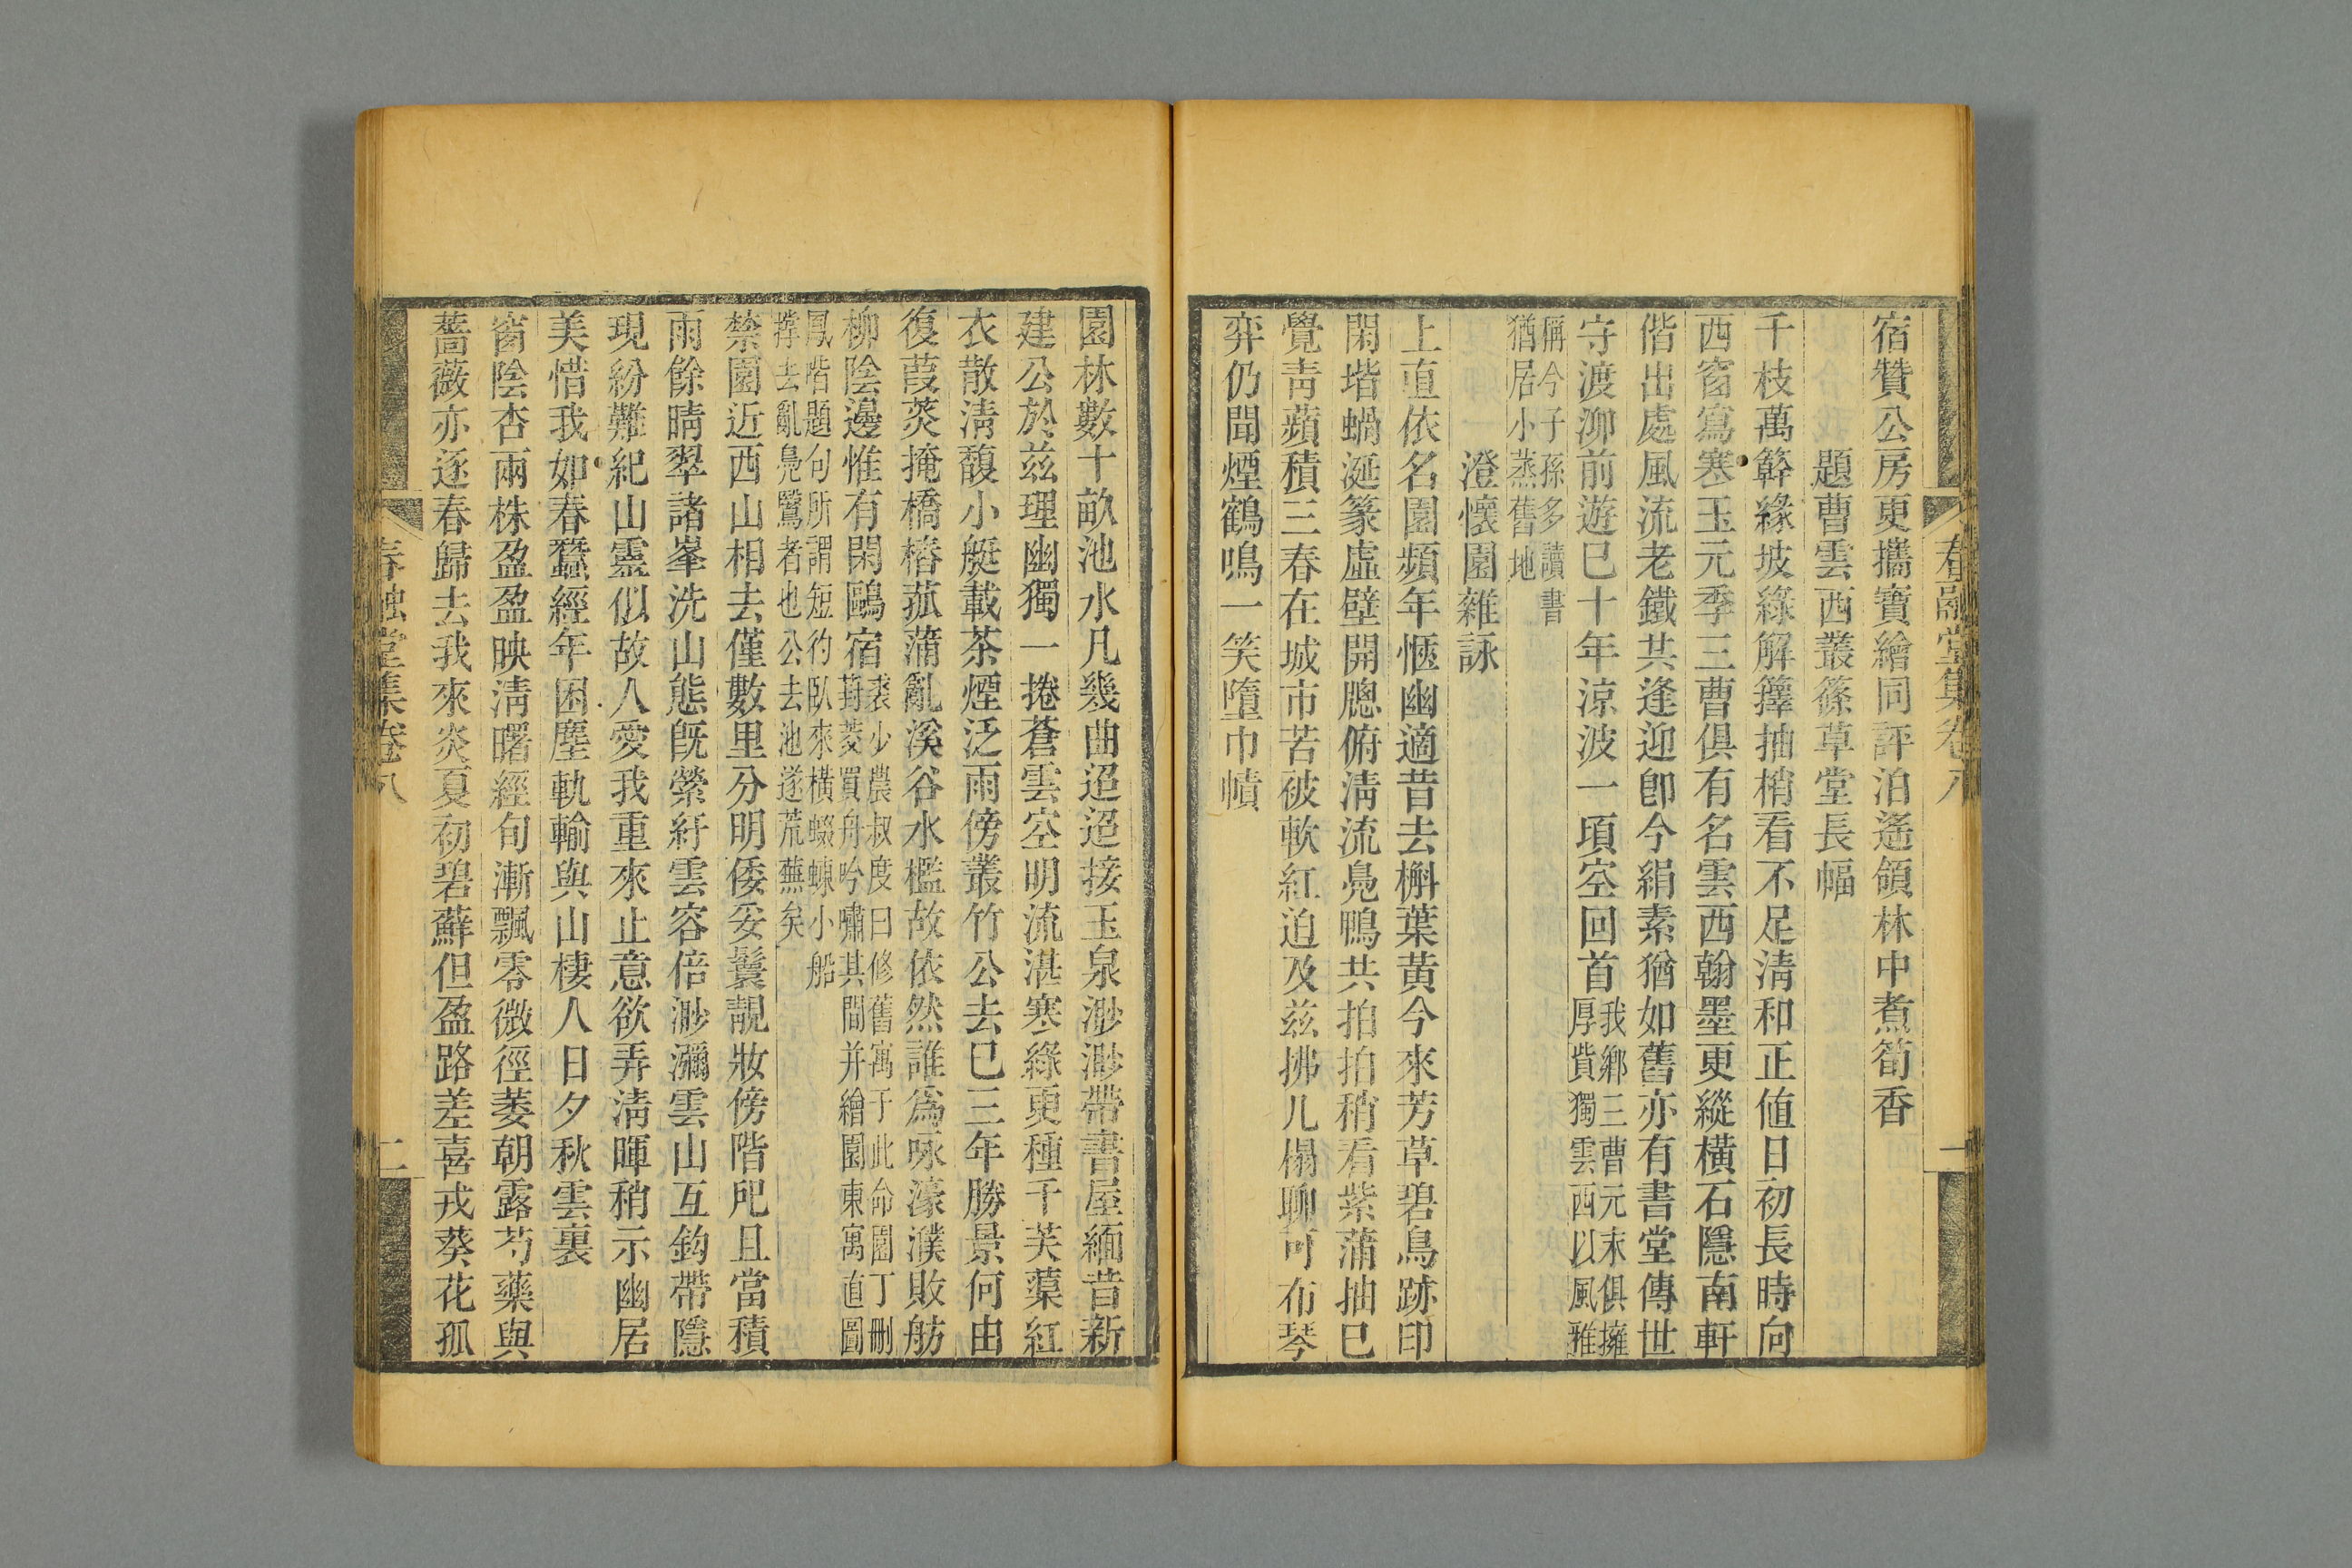 春融堂集卷八
一
宿贊公房更攜寶繪同評泊遙領林中煮筍香
題曹雲西叢篠草堂長幅
千枝萬簳緣坡綠解籜抽梢看不足淸和正値日初長時向
西窗寫寒玉元季三曹俱有名雲西翰墨更縱橫石隱南軒
偕出處風流老鐵共逢迎卽今絹素猶如舊亦有書堂傳世
守渡泖前遊巳十年涼波一頃空回首我鄕三曹元末俱擁
厚貲獨雲西以風雅
稱今子孫多讀書
猶居小蒸舊地
澄懷園雜詠
上直依名園頻年愜幽適昔去槲葉黃今來芳草碧鳥跡印
閑堦蝸涎篆虛壁開牕俯淸流鳧鴨共拍拍稍看紫蒲抽巳
覺靑蘋積三春在城市苦被軟紅迫及茲拂几榻聊可布琴
弈仍聞煙鶴鳴一笑墮巾幘
園林數十畝池水凡幾曲迢迢接玉泉渺渺帶書屋緬昔新
建公於茲理幽獨一捲蒼雲空明流湛寒綠更種千芙蕖紅
衣散淸馥小艇載茶煙泛雨傍叢竹公去巳三年勝景何由
復葭菼掩橋樁菰蒲亂溪谷水檻故依然誰爲咏濠濮敗舫
柳陰邊惟有閑鷗宿裘少農叔度曰修舊寓于此命園丁刪
葑菱買舟吟嘯其間并繪園東寓直圖
鳳階題句所謂短彴臥來橫蝃蝀小船
撐去亂鳧鷖者也公去池遂荒蕪矣
禁園近西山相去僅數里分明倭妥鬟靚妝傍階戺且當積
雨餘晴翠諸峯洗山態旣縈紆雲容倍渺瀰雲山互鈎帶隱
現紛難紀山靈似故人愛我重來止意欲弄淸暉稍示幽居
美惜我如春蠶經年困塵軌輸與山棲人日夕秋雲裏
窗陰杏兩株盈盈映淸曙經旬漸飄零微徑萎朝露芍藥與
薔薇亦逐春歸去我來炎夏初碧蘚但盈路差喜戎葵花孤
春融堂集卷八
二